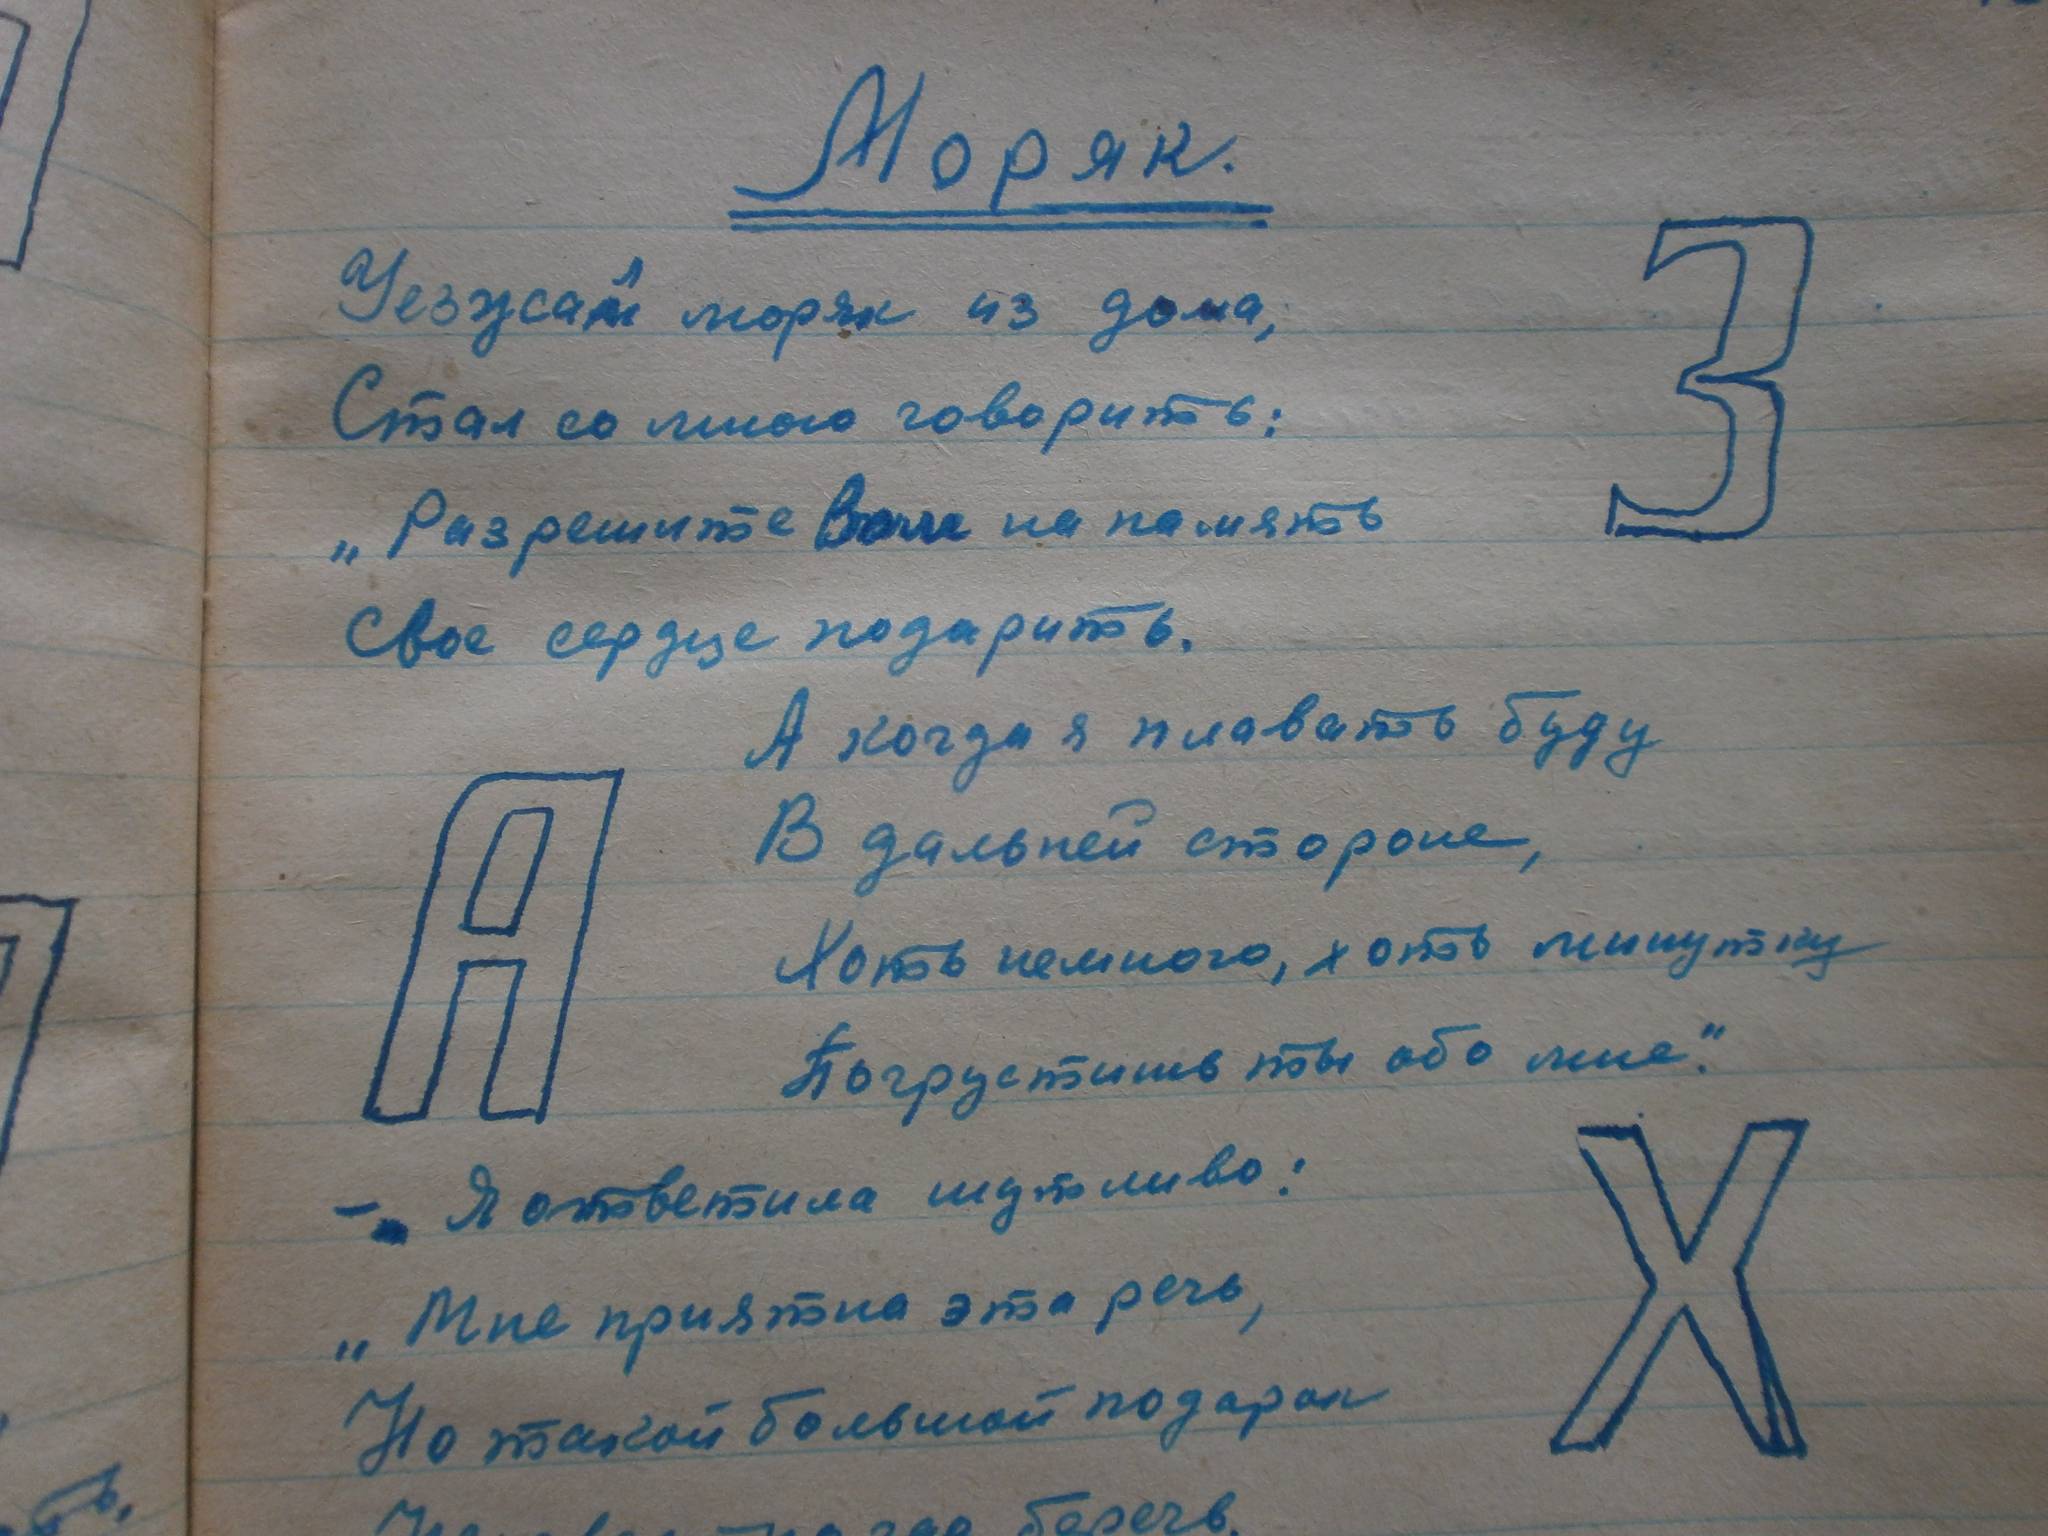 Моряк.
Уезжал моряк из дома,
Стал со мною говорить:
„Разрешите Вам на память
Свое сердце подарить.
А когда я плавать буду
В дальней стороне,
Хоть немного, хоть минутку
Погрустишь ты обо мне."
- Я ответила шутливо:
„Мне приятна эта речь,
Но такой большой подарок
беречь.
З
А
Х